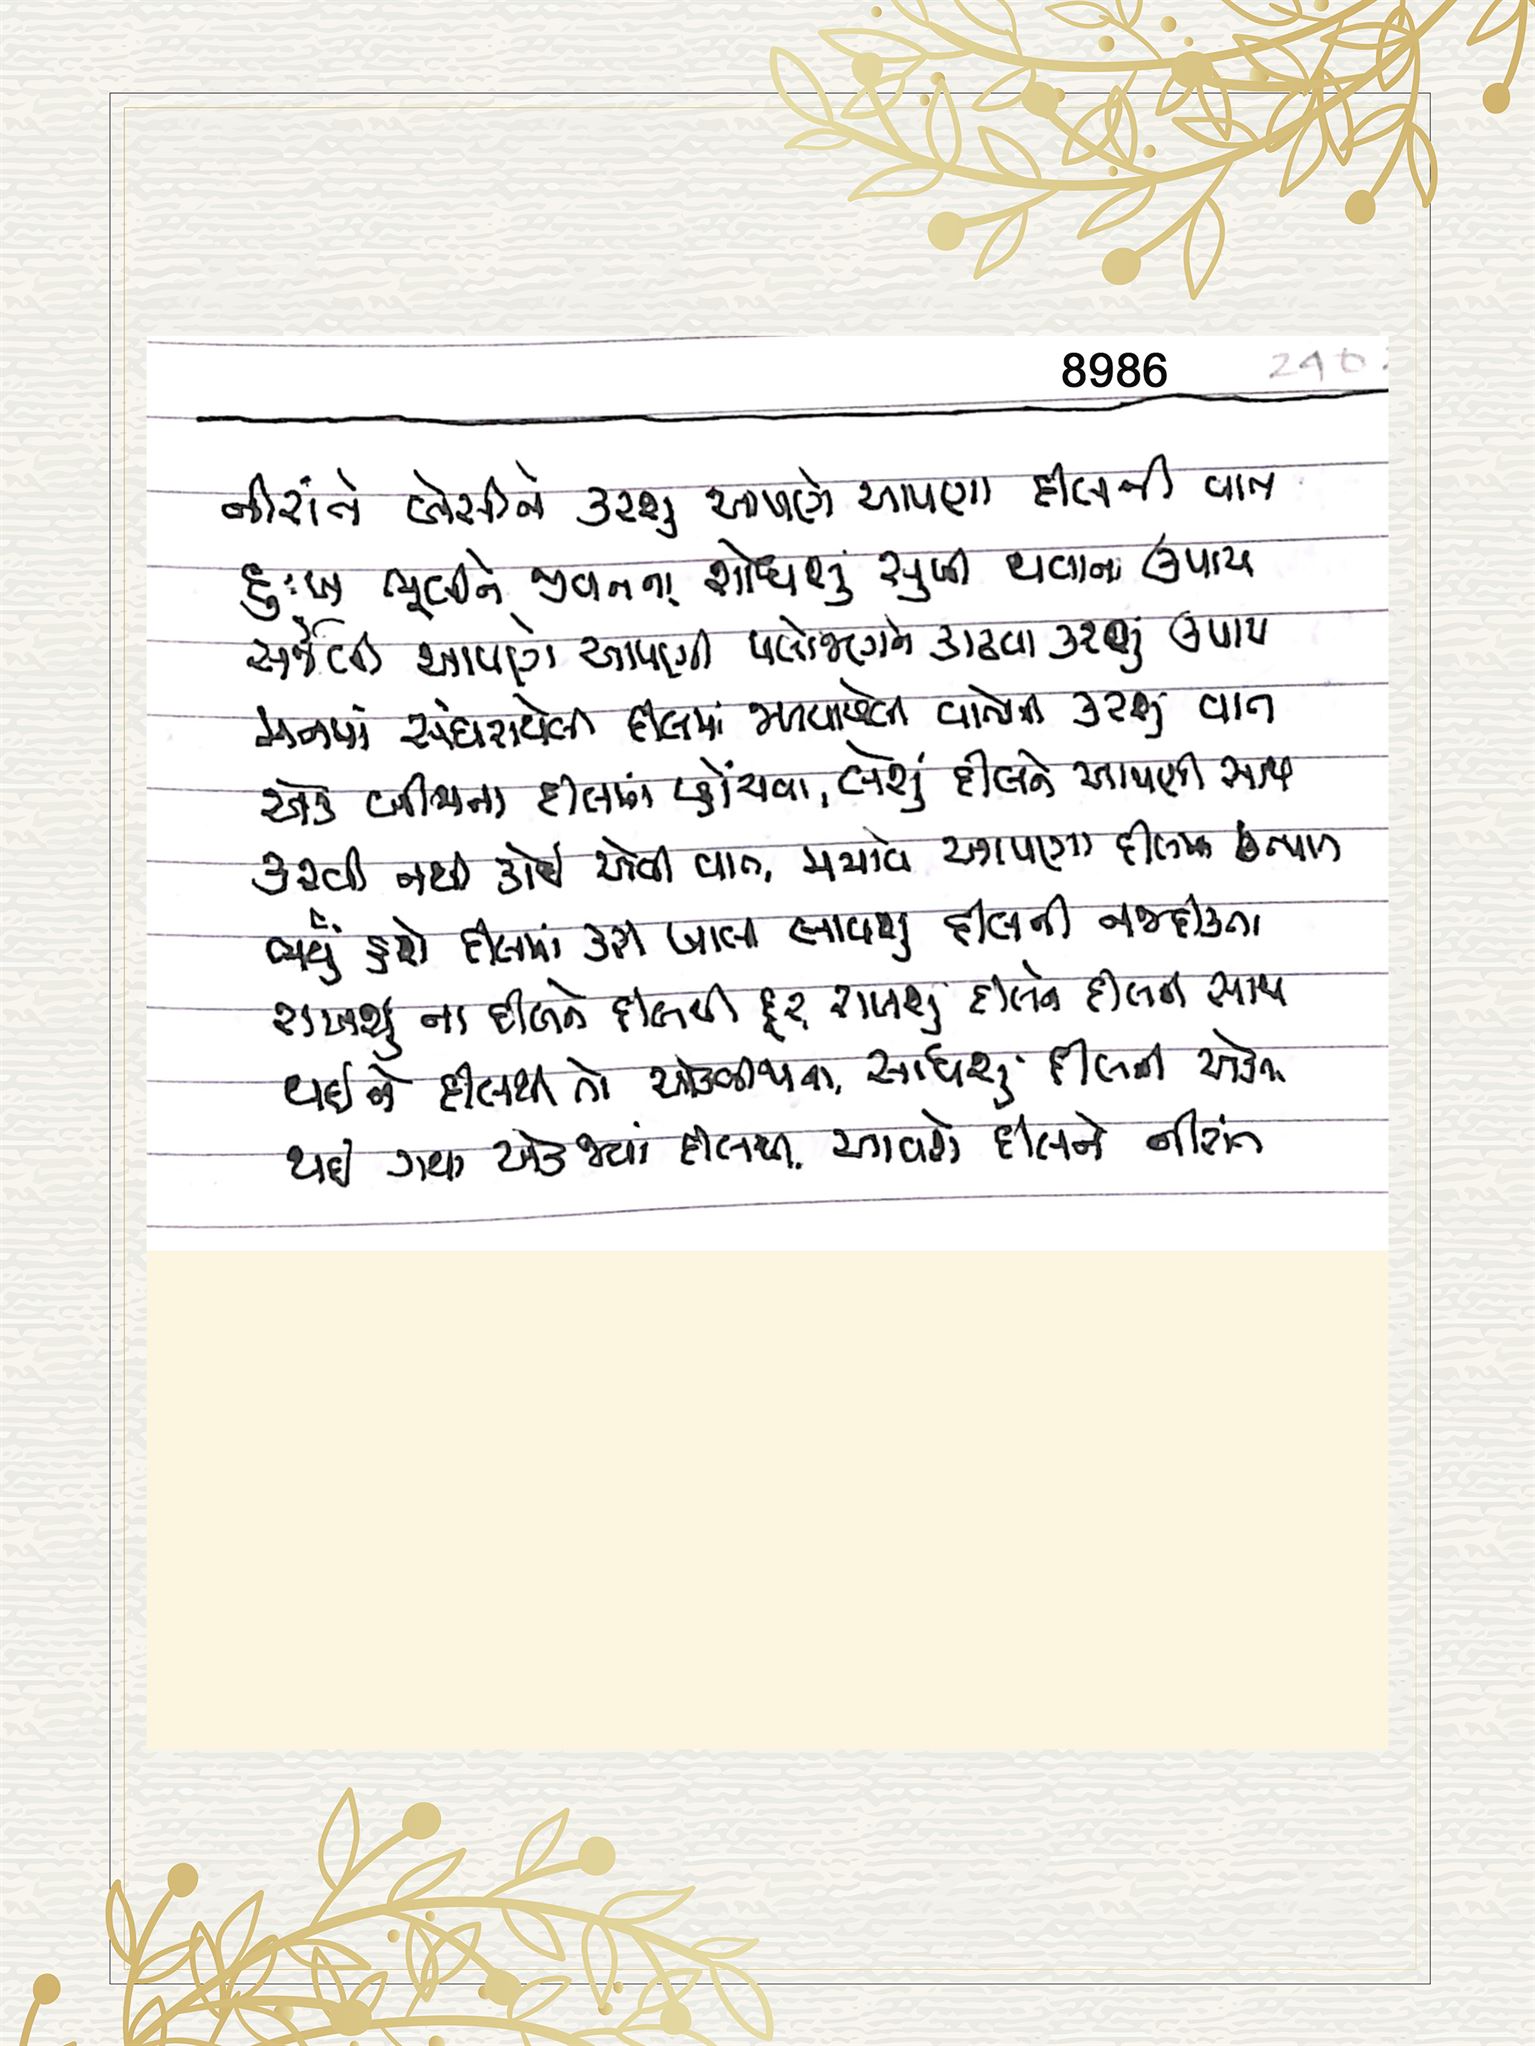 8986
નીરાંતે બેસીને કરશું આપણે આપણા દીલની વાત
દુઃખ ભૂલીને જીવનના શોધશું સુખી થવાના ઉપાય
સર્જેલી આપણે આપણી પલોજણને કાઢવા કરશું ઉપાય
મનમાં સંઘરાયેલી દીલમાં વાતોની કરશું વાત
એક બીજાના દીલમાં પ્હોંચવા, લેશું દીલને આપણી સાથ
કરવી નથી કોઈ એવી વાત, મચાવે આપણા દીલમાં ઉત્પાત
વ્યર્થ કુશે દીલમાં કરી ખાલી લાવશું દીલની નજદીકતા
રાખશું ના દીલને દીલથી દૂર, રાખશું દીલને દીલની સાથ
થઈને દીલથી તો એકબીજાના, સાધશું દીલની એકતા
થઈ ગયા એક જ્યાં દીલથી, આવશે દીલને નીરાંત